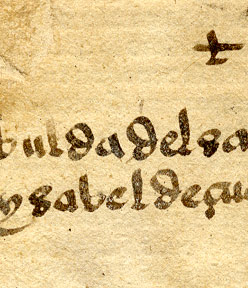 bulda del sa
ysabel de gu